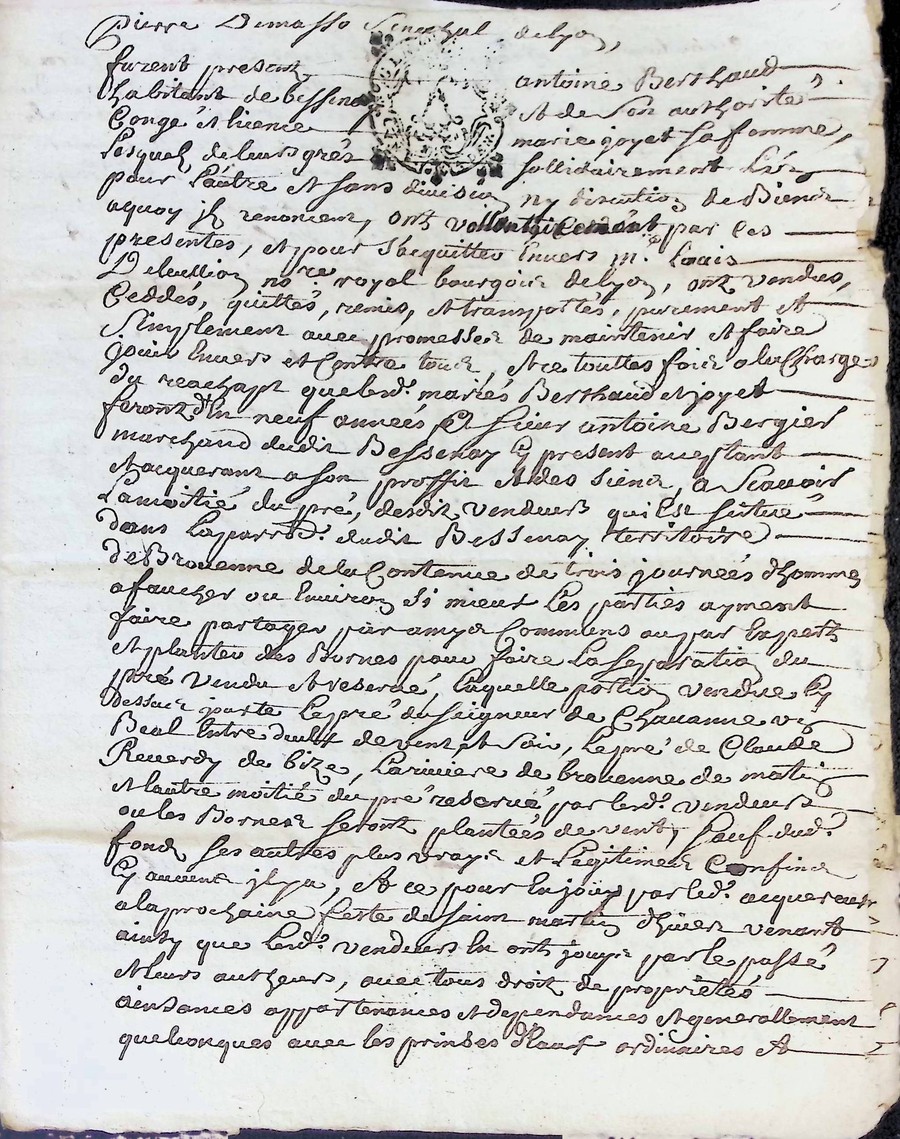 Pierre Demasso Senechal delyon,
furent presents antoine Berthaud
habitant de bessenay et de son authorité
Congé et licence marie joyet sa femme,
Lesquels de leurs grés sollidairement L'un
pour L'autre et sans division ny discution de Biens
aquoy ils renoncent, ont vollontairement par ces
presentes, et pour s'acquitter Envers mr. Louis
nore. royal bourgois delyon, ont vendus,
Ceddés, quittés, remis, et transportés, purement et
Simplement avec promesses de maintenir et faire
jouir Envers et Contre tous, et ce touttes fois ala Charge
du reachapt que lesds. mariés Berthaud et joyet
feront d'En neuf années Et sieur antoine Bergier
marchand dudit Bessenay Cy present acceptant
et acquerant a son proffit et des siens, a Scavoir
La moitié du pré, desdits vendeurs qui Est situé
dans La parrse. dudit Bessenay territoire
de Brouenne de la Contenue de trois journées d'hommes
a faucher ou Environ si mieux Les parties ayment
faire partager par amys Communs ou par Experts
et planter des Bornes pour faire La separation du
pré vendu et reservé, laquelle portion vendue Cy
dessus jouxte Le pré du seigneur de Chavanne un
Beal Entre deux de vent et soir, Le pré de Claude
Reverdy de bize, La riviere de brouenne de matin
et L'autre moitié du pré reservé par lesds. vendeurs
ou les Bornes seront plantées de vent, sauf dud.
fond ses autres plus vrays et Legitimes Confins
Cy aucuns il y a, et ce pour En jouir par led. acquereur
a la prochaine feste de saint martin d'hiver venant
ainsy que lesds. vendeurs En ont jouys par le passé
et leurs autheurs, avec tous droits de proprietés
aisances appartenances et dependances et generallement
quelconques avec les prinses d'Eaux ordinaires et